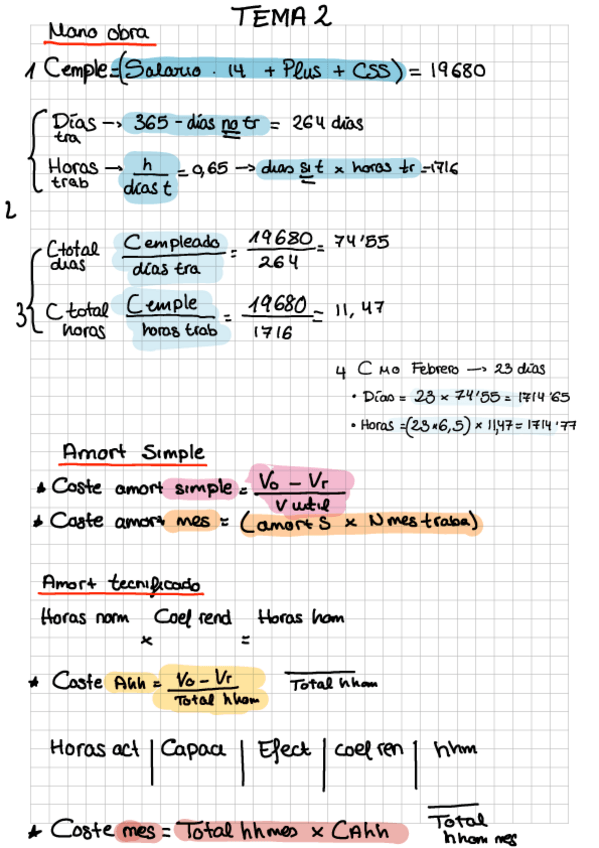 TEMA 2
Mano obra
1 Cemple=(Salario · 14 + Plus + CSS) = 19680
Días tra → 365 - días no tr = 264 días
Horas trab → h / días t = 0,65 → dias si t x horas tr = 1716
2
C total dias C empleado / días tra = 19680 / 264 = 74'55
3 C total horas C emple / horas trab = 19680 / 1716 = 11,47
4 C MO Febrero → 23 días
• Días = 23 x 74'55 = 1714'65
• Horas = (23x6,5) x 11,47 = 1714'77
Amort Simple
* Coste amort simple = Vo - Vr / V util
* Coste amort mes = (amort S x N mes traba)
Amort tecnificado
Horas norm x Coef rend = Horas hom
* Coste Ahh = Vo - Vr / Total hhom
Total hhom
Horas act | Capaci | Efect | coef ren | hhm
Total hhom mes
* Coste mes = Total hhmes x CAhh